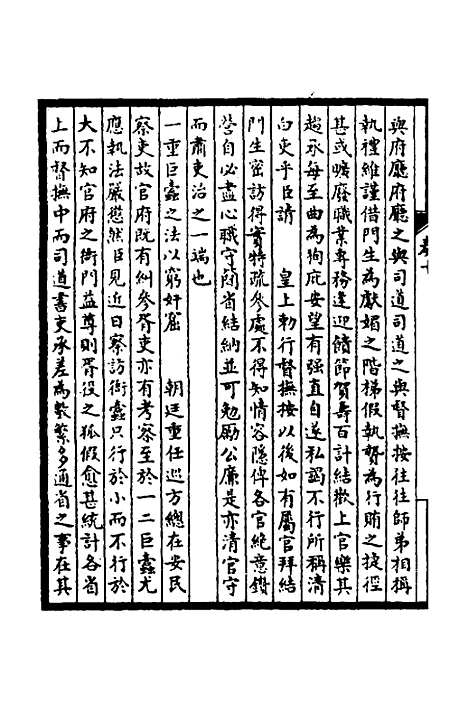 與府廳府廳之與司道司道之與督撫按往往師弟相稱
執禮維謹借門生為獻媚之階梯假執贄為行賄之捷徑
甚或曠廢職業專務逢迎饋節賀壽百計結歡上官樂其
趨承每至曲為狥庇安望有强直自遂私謁不行所稱清
白吏乎臣請　皇上勅行督撫按以後如有屬官拜結
門生密訪得實特疏參處不得知情容隱俾各官絶意鑽
營自必盡心職守閉省結納並可勉勵公廉是亦清官守
而肅吏治之一端也
一重巨蠹之法以窮奸窟　朝廷重任巡方總在安民
察吏故官府既有糾參胥吏亦有考察至於一二巨蠹尤
應執法嚴懲然臣見近日察訪衙蠹只行於小而不行於
大不知官府之衙門益尊則胥役之狐假愈甚統計各省
上而督撫中而司道書吏承差為數繁多通省之事在其
卷十